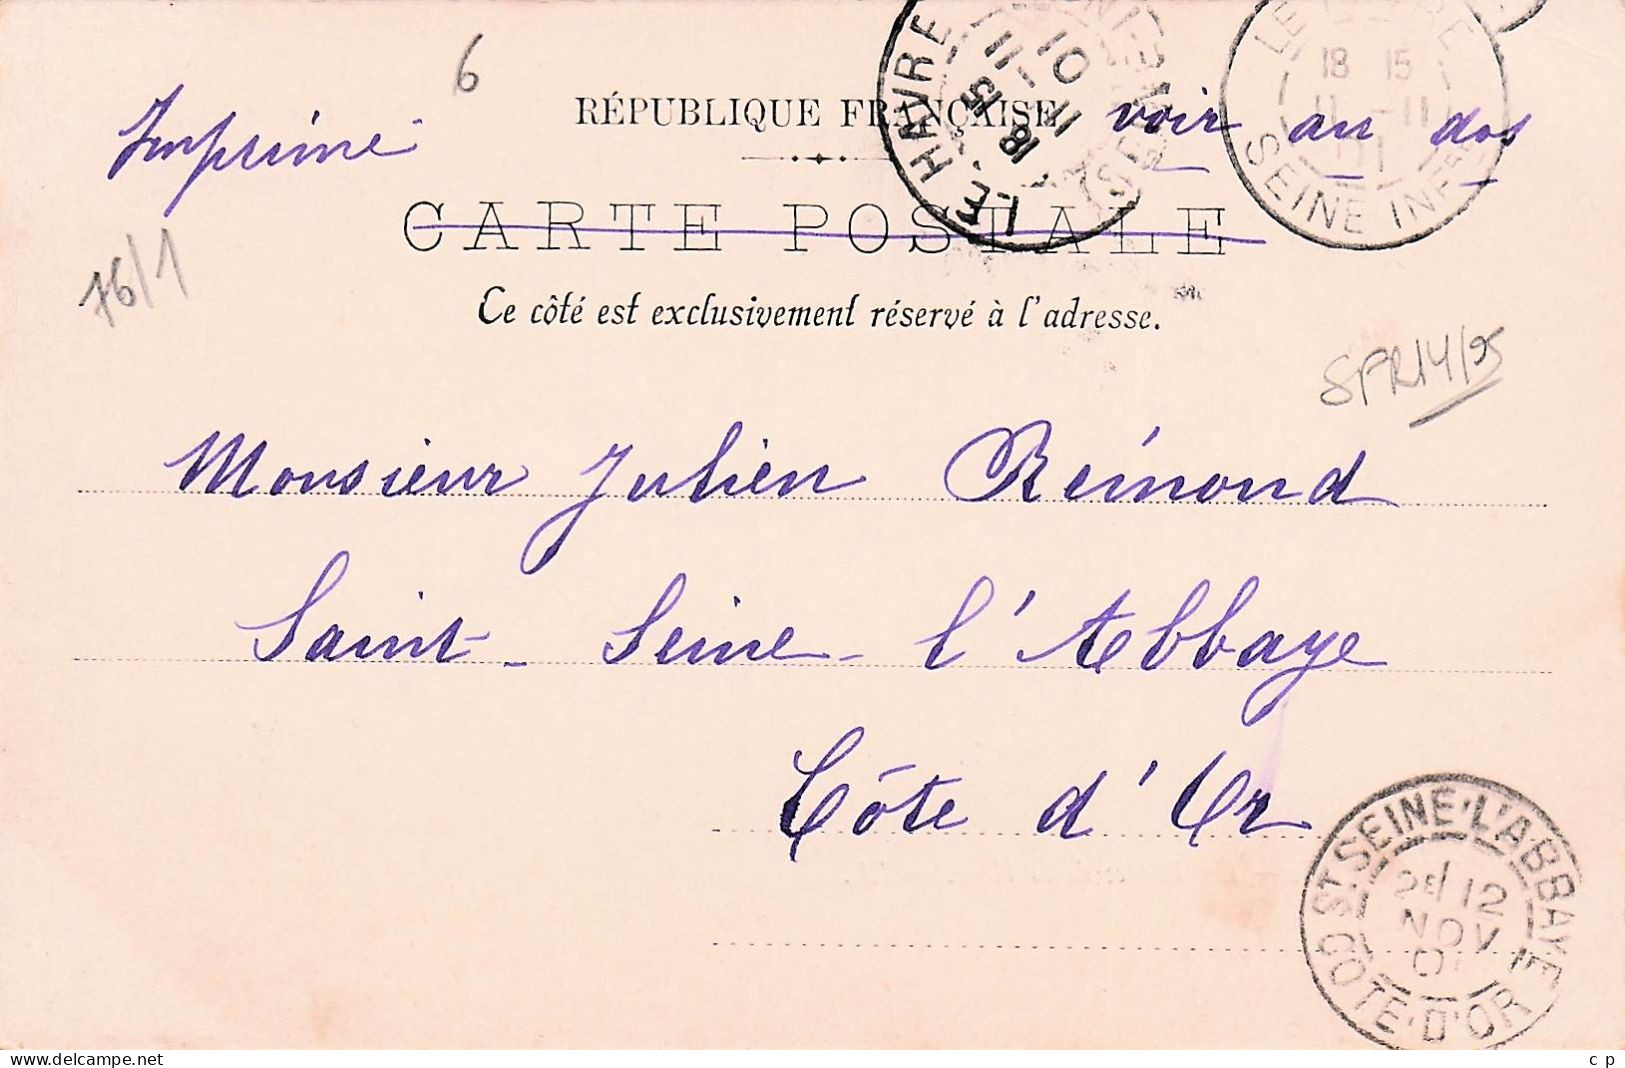 6
Imprimé
RÉPUBLIQUE FRANÇAISE
voir au dos
CARTE POSTALE
76/1
Ce côté est exclusivement réservé à l'adresse.
SFR14/95
Monsieur Julien Rémond
Saint-Seine-l'Abbaye
Côte d'Or
LE HAVRE
18 15
11 11
01
LE HAVRE
18 15
11 -11
01
SEINE INFRE
ST SEINE-L'ABBAYE
2E/12
NOV
01
COTE-D'OR
www.delcampe.net
c p